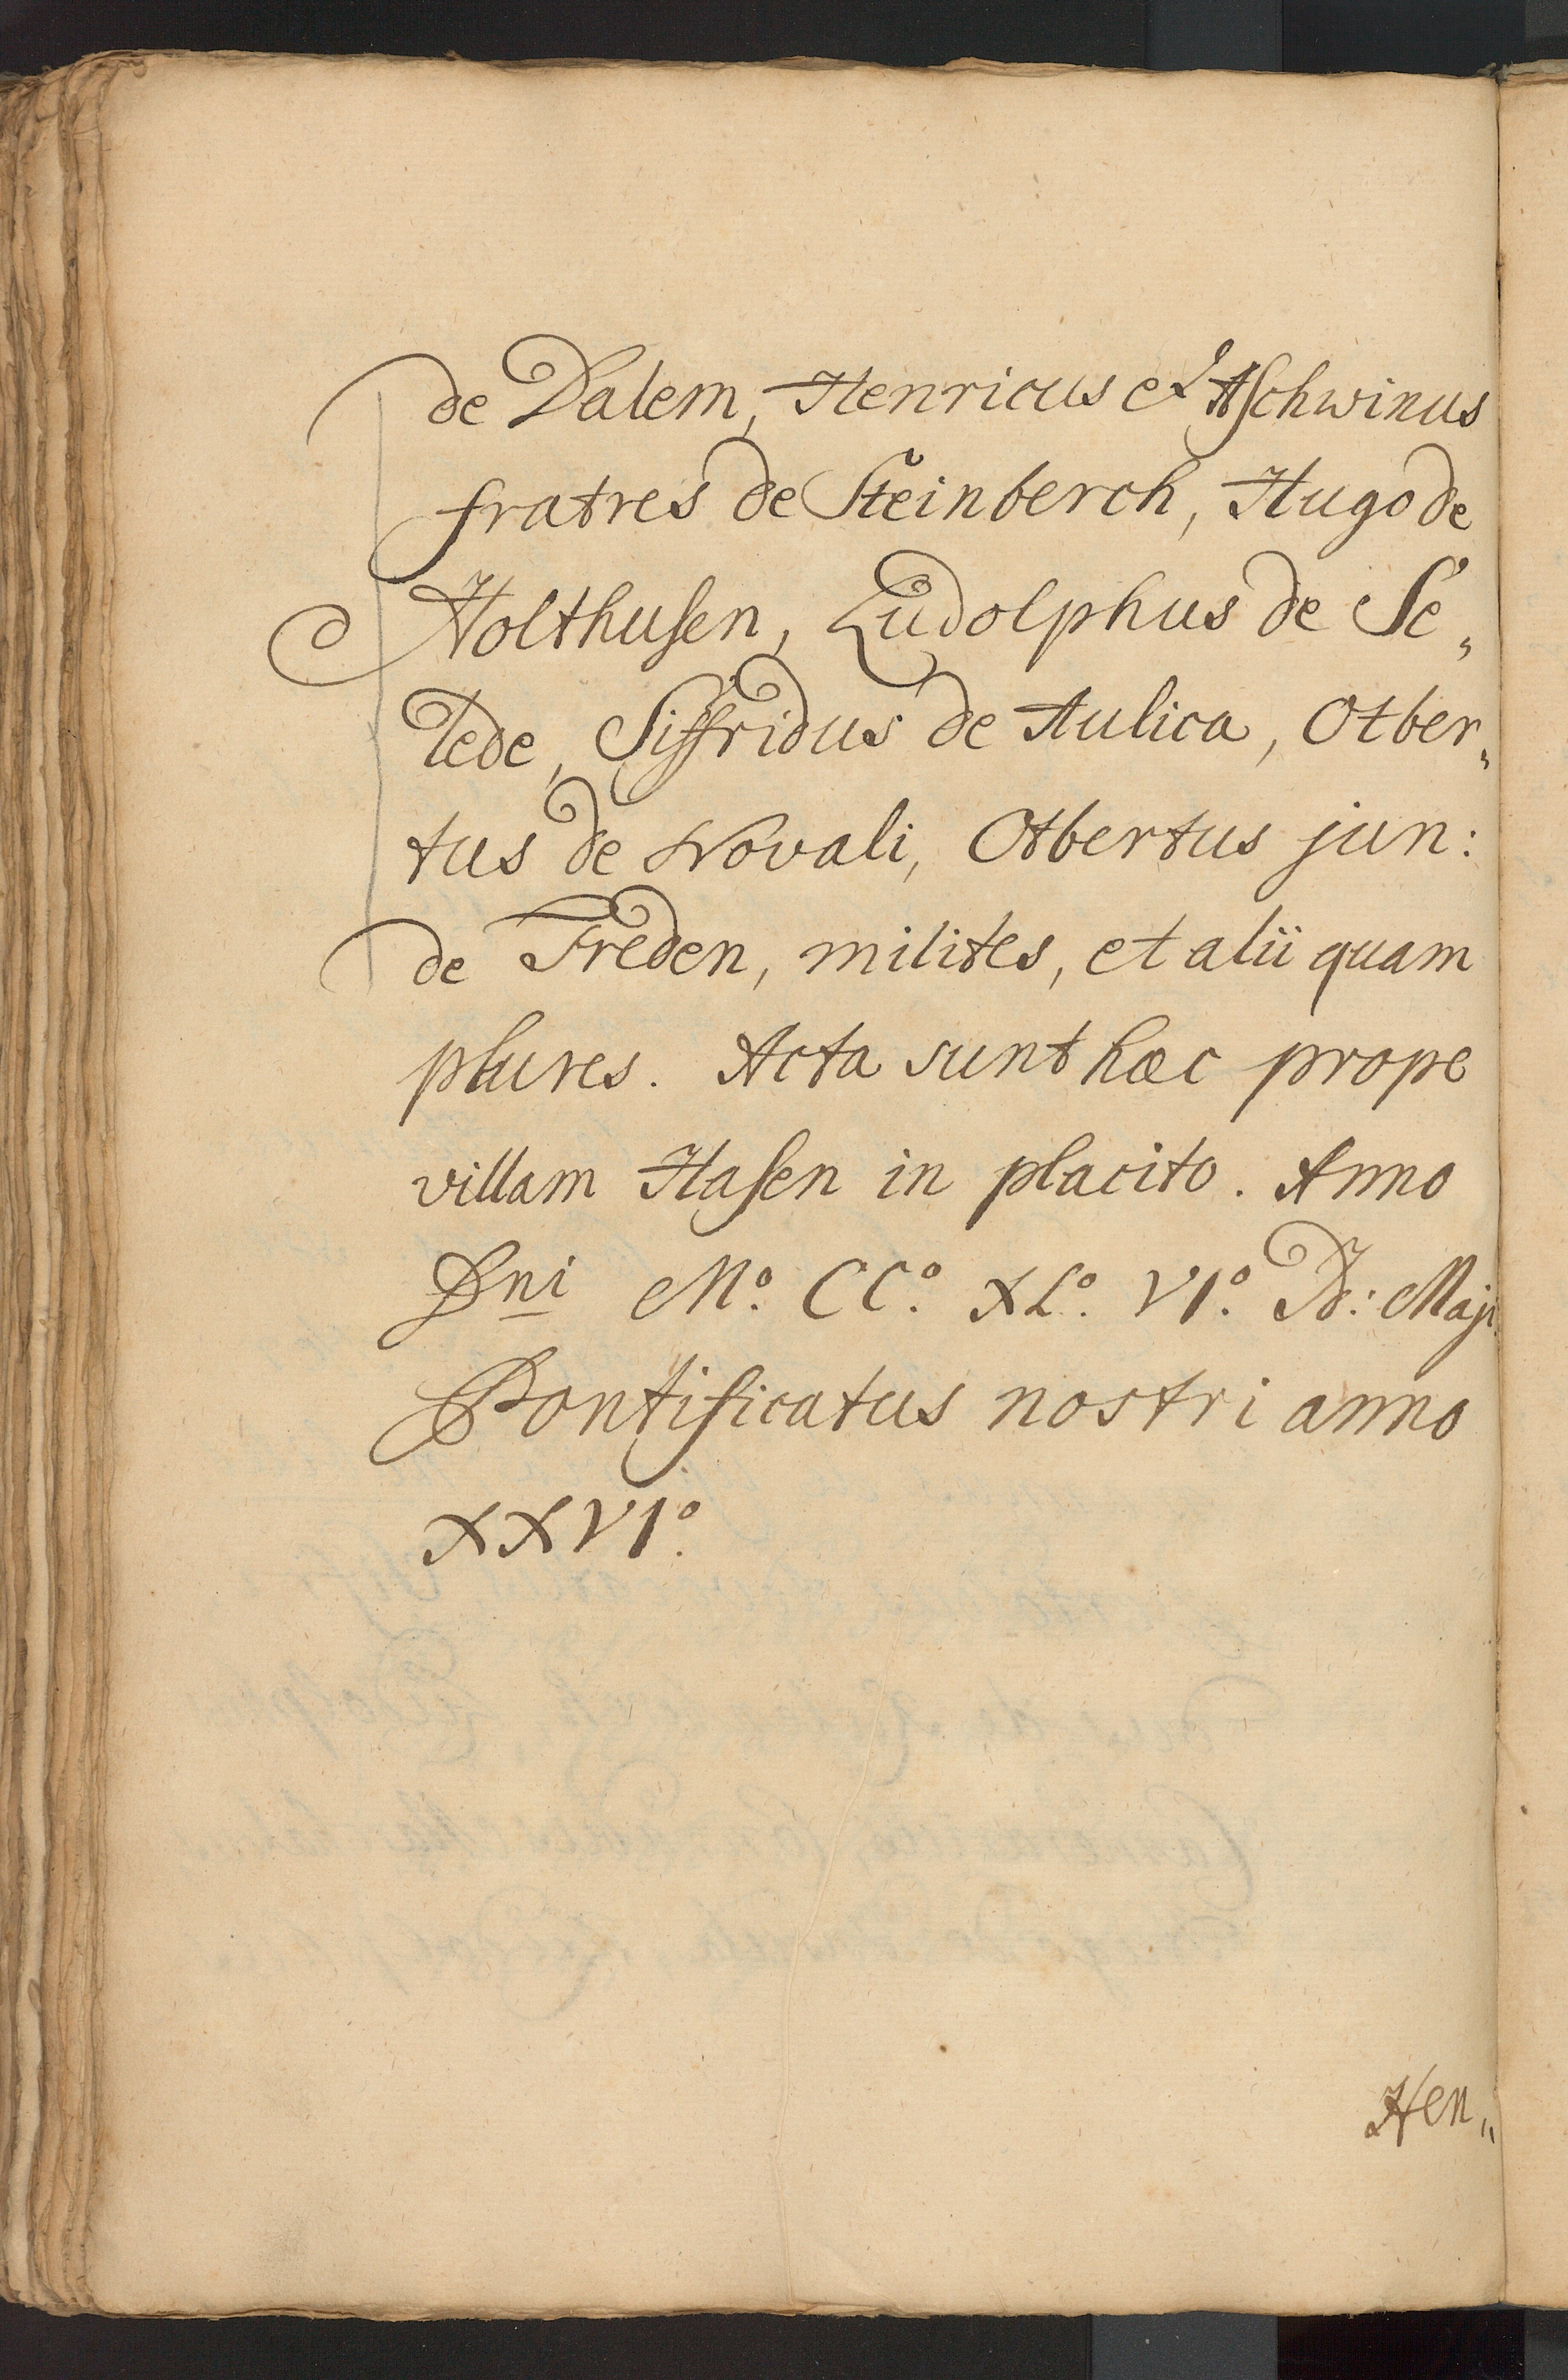 de Dalem, Henricus et Aschwinus
fratres de Steinberch, Hugo de
Holthusen, Ludolphus de Se„
lede, Siffridus de Aulica, Otber„
tus de Novali, Otbertus jun:
de Freden, milites, et alii quam
plures. Acta sunt haec prope
villam Hasen in placito. Anno
Dni Mº. CCº. XLº. VIº. Maji
Pontificatus nostri anno
XXVIº.
Hen„